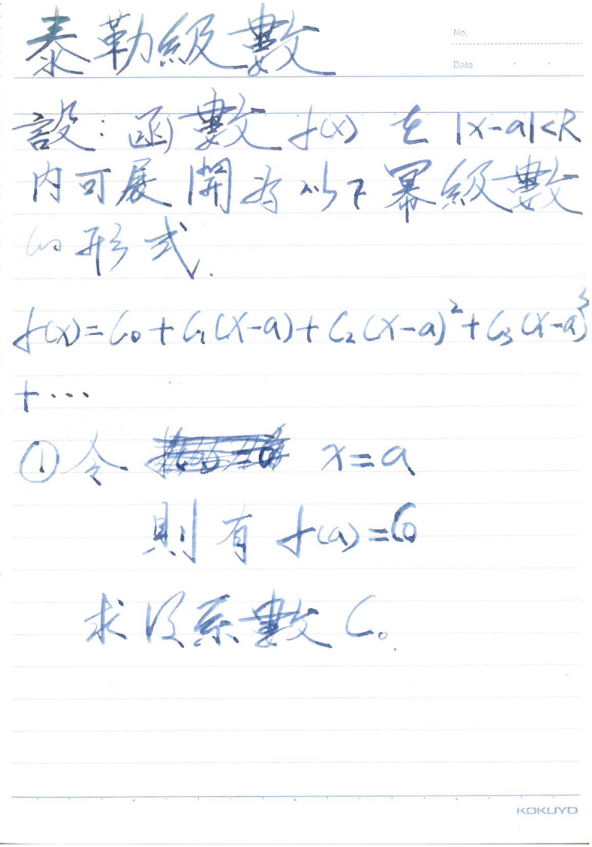 泰勒級數
No.
Date
設：函數 f(x) 在 |x-a|<R
內可展開為以下冪級數
的形式.
f(x)=C₀+C₁(x-a)+C₂(x-a)²+C₃(x-a)³
+···
① 令 x=a
則有 f(a)=C₀
求得系數 C₀.
KOKUYO